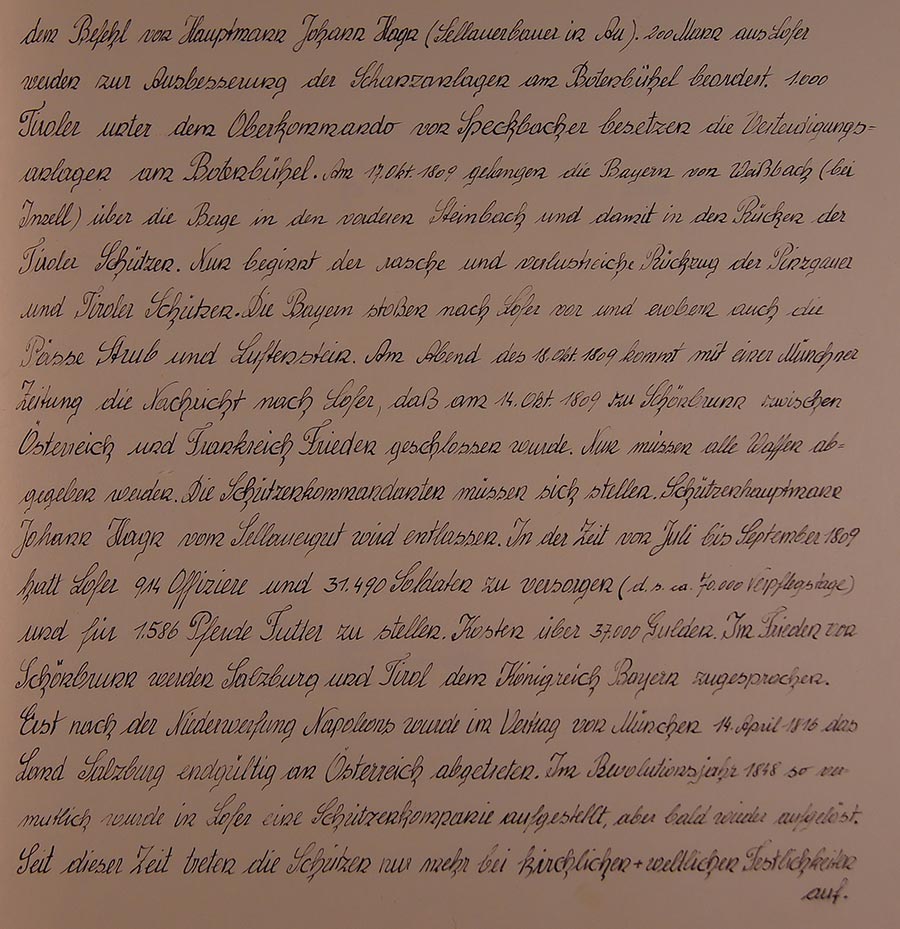 dem Befehl von Hauptmann Johann Hagn (Sellauerbauer in Au). 200 Mann aus Lofer
werden zur Ausbesserung der Schanzanlagen am Botenbühel beordert. 1.000
Tiroler unter dem Oberkommando von Speckbacher besetzen die Verteidigungs=
anlagen am Botenbühel. Am 17. Okt. 1809 gelangen die Bayern von Waißbach (bei
Inzell) über die Berge in den vorderen Steinbach und damit in den Rücken der
Tiroler Schützen. Nun beginnt der rasche und verlustreiche Rückzug der Pinzgauer
und Tiroler Schützen. Die Bayern stoßen nach Lofer vor und erobern auch die
Pässe Strub und Luftenstein. Am Abend des 18. Okt. 1809 kommt mit einer Münchner
Zeitung die Nachricht nach Lofer, daß am 14. Okt. 1809 zu Schönbrunn zwischen
Österreich und Frankreich Frieden geschlossen wurde. Nun müssen alle Waffen ab=
gegeben werden. Die Schützenkommandanten müssen sich stellen. Schützenhauptmann
Johann Hagn vom Sellauergut wird entlassen. In der Zeit von Juli bis September 1809
hatt Lofer 914 Offiziere und 31.490 Soldaten zu versorgen (d. s. ca. 70.000 Verpflegstage)
und für 1.586 Pferde Futter zu stellen. Kosten über 37.000 Gulden. Im Frieden von
Schönbrunn werden Salzburg und Tirol dem Königreich Bayern zugesprochen.
Erst nach der Niederwerfung Napoleons wurde im Vertrag von München 14. April 1816 das
Land Salzburg endgültig an Österreich abgetreten. Im Revolutionsjahr 1848 so ver-
mutlich wurde in Lofer eine Schützenkompanie aufgestellt, aber bald wieder aufgelöst.
Seit dieser Zeit treten die Schützen nur mehr bei kirchlichen + weltlichen Festlichkeiten
auf.